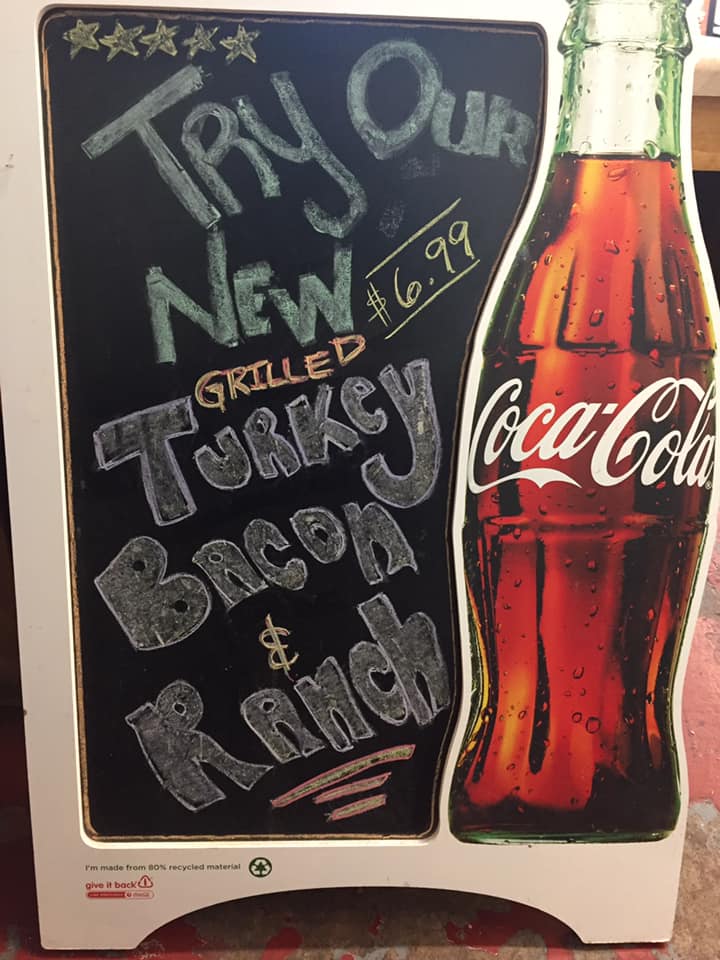 TRY OUR
NEW
$6.99
GRILLED
TURKEY
BACON
&
RANCH
Coca-Cola
I'm made from 80% recycled material
give it back